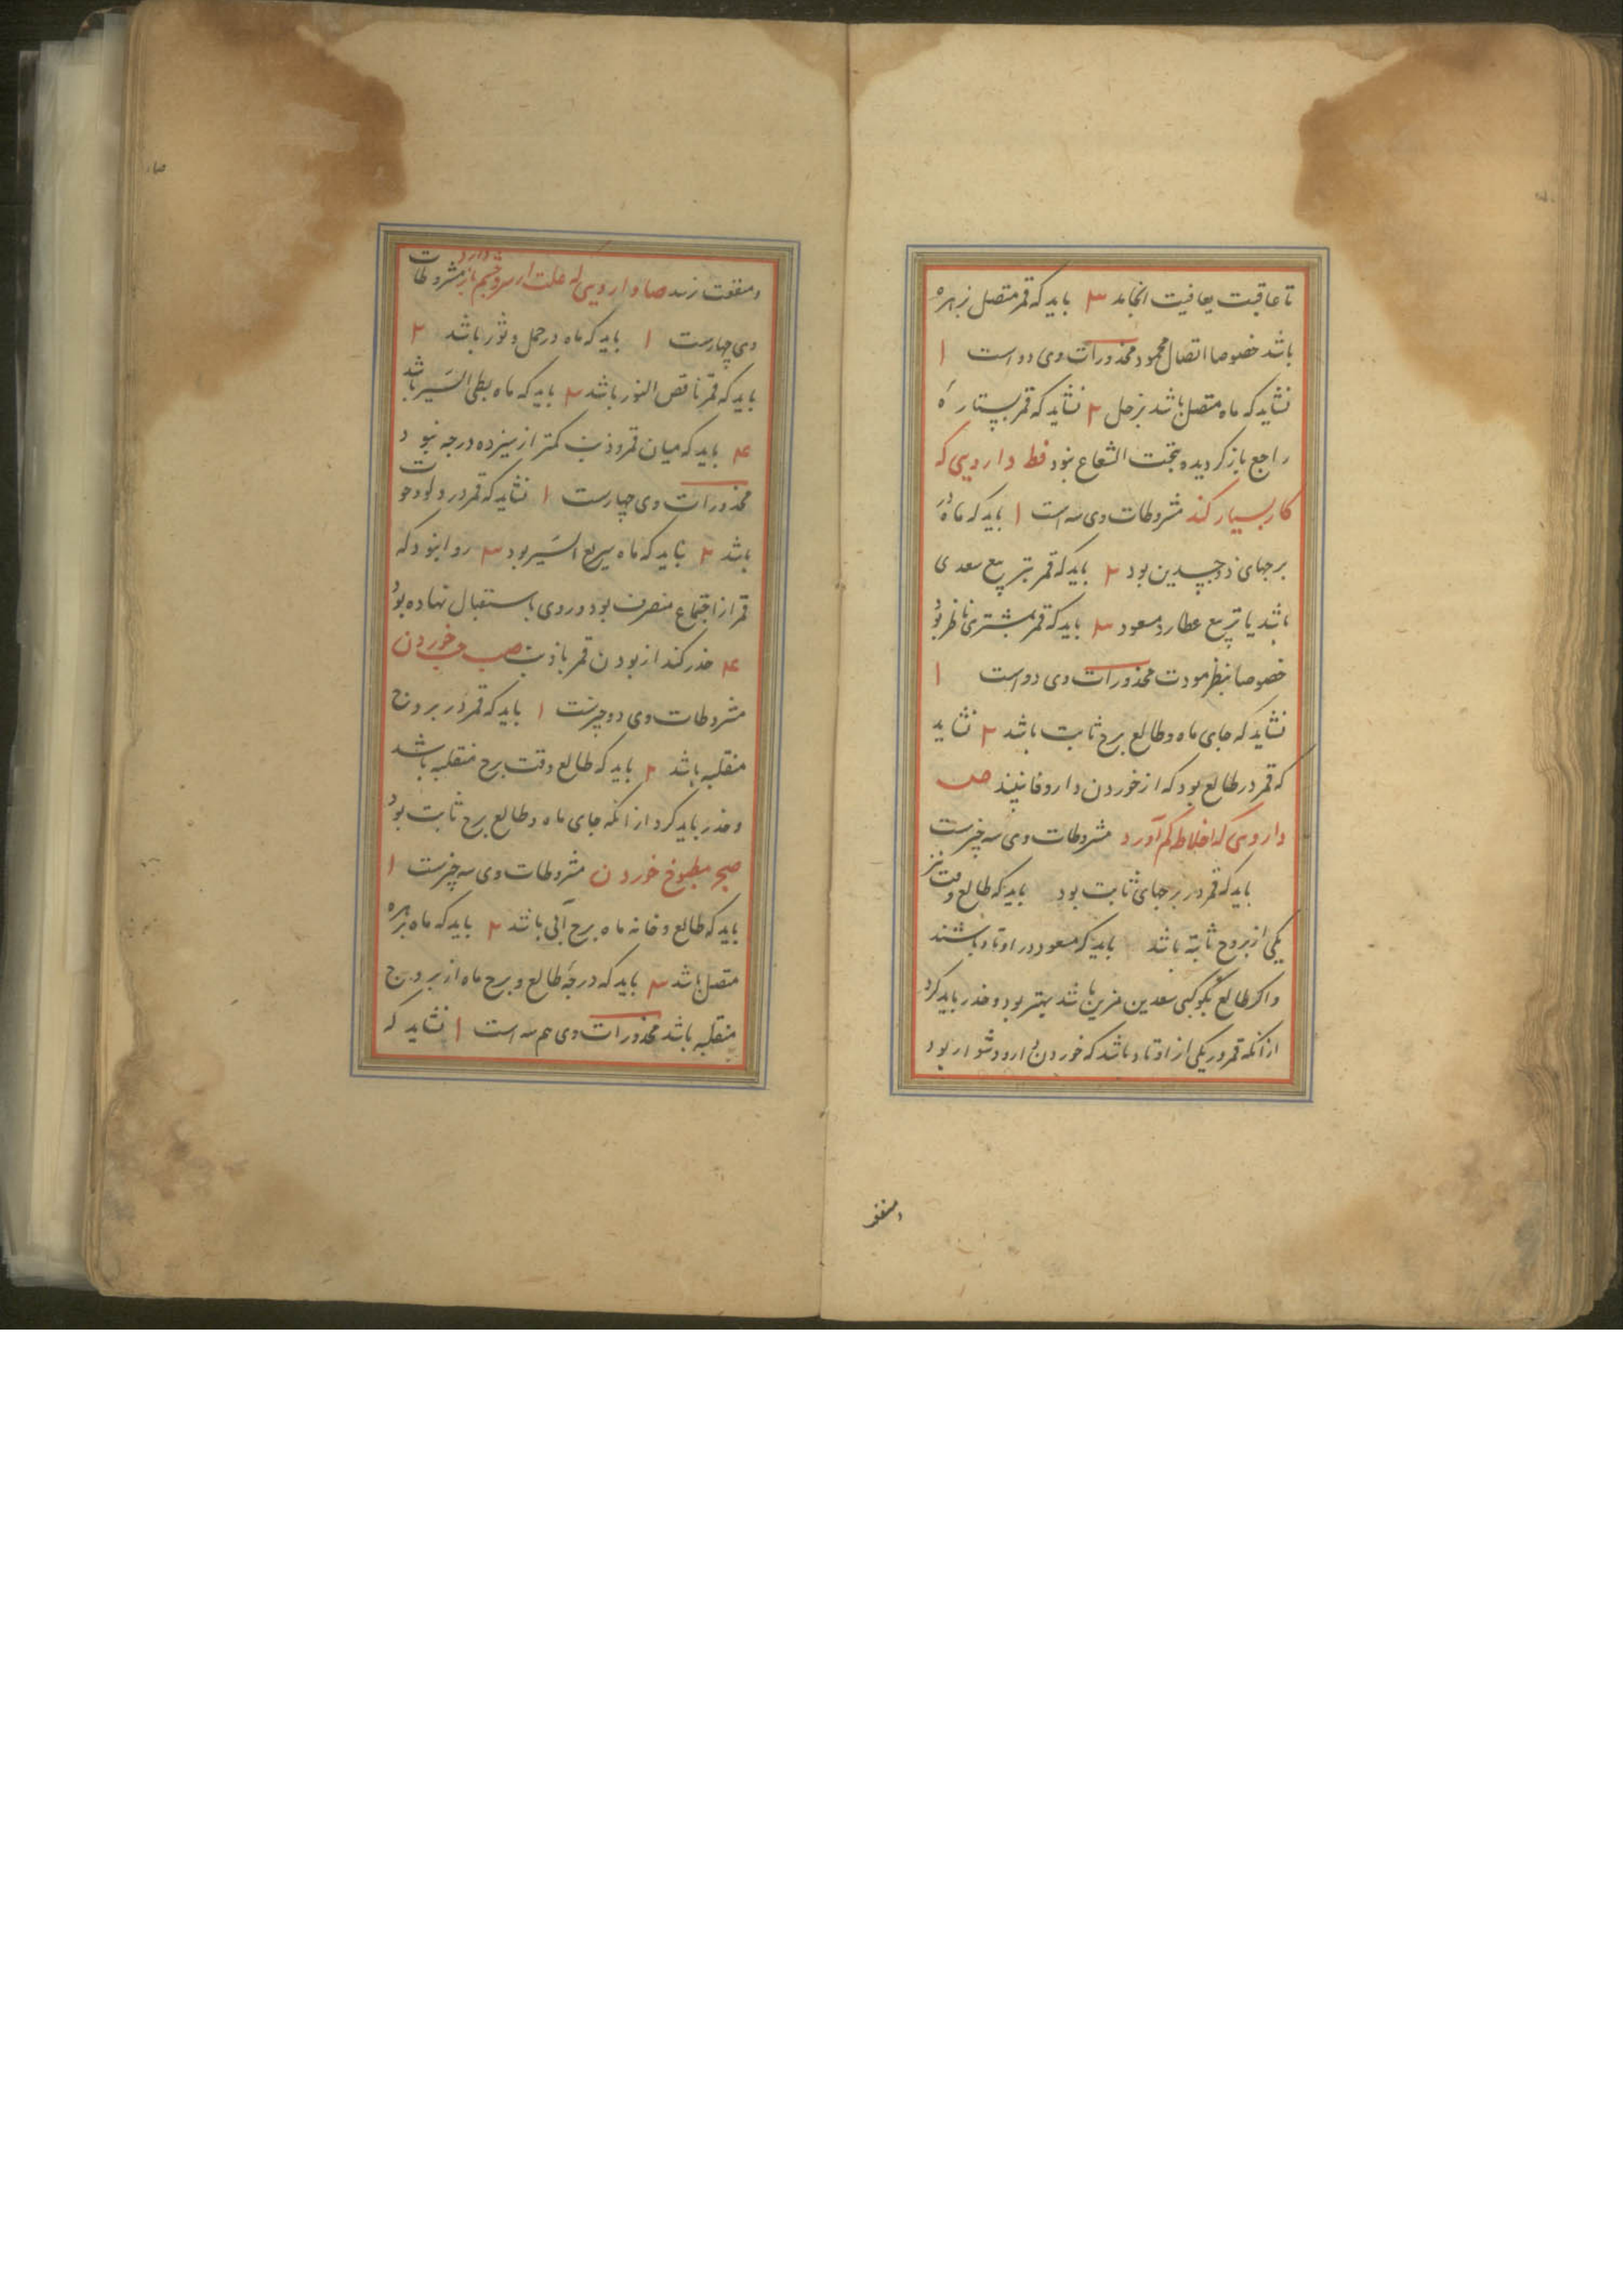 تا عاقبت بعافیت انجامد ۳ باید که قمر متصل زهره
باشد خصوصا اتصال محمود محذورات وی دو است ۱
نشاید که ماه متصل باشد بزحل ۲ نشاید که قمر بستارهٔ
راجع بازگردیده تحت الشعاع بود فط داروی که
کار بسیار کند مشروطات وی سه است ۱ باید که ماه در
برجهای ذوجسدین بود ۲ باید که قمر بتربیع سعدی
باشد یا تربیع عطارد مسعود ۳ باید که قمر بمشتری ناظر بود
خصوصا بنظر مودت محذورات وی دو است ۱
نشاید که جای ماه و طالع برج ثابت باشد ۲ نشاید
که قمر در طالع بود که از خوردن دارو فا نبیند ص
داروی که اخلاط کم آورد مشروطات وی سه چیزست
باید که قمر در برجهای ثابت بود باید که طالع وقت نیز
یکی از بروج ثابته باشد باید که مسعود در اوتاد باشند
و اکر طالع بکوکبی سعدین مزین باشد بهتر بود و حذر باید کرد
از انکه قمر در یکی از اوتاد باشد که خوردن دارو دشوار بود
و منفعو
و منفعت نرسد صا داروی که علت از سر و چشم باز دارد مشروطات
وی چهارست ۱ باید که ماه در حمل و ثور باشد ۲
باید که قمر ناقص النور باشد ۳ باید که ماه بطی السیر باشد
۴ باید که میان قمر و ذنب کمتر از سیزده درجه نبود
محذورات وی چهارست ۱ نشاید که قمر در دلو و حوت
باشد ۲ نباید که ماه سریع السیر بود ۳ روا نبود که
قمر از اجتماع منصرف بود و روی باستقبال نهاده بود
۴ حذر کند از بودن قمر با ذنب صب حب خوردن
مشروطات وی دو چیزست ۱ باید که قمر در بروج
منقلبه باشد ۲ باید که طالع وقت برج منقلبه باشد
و حذر باید کرد از انکه جای ماه و طالع برج ثابت بود
صج مطبوخ خوردن مشروطات وی سه چیزست ۱
باید که طالع و خانه ماه برج آبی باشد ۲ باید که ماه بزهره
متصل باشد ۳ باید که درجهٔ طالع و برج ماه از بروج
منقلبه باشد محذورات وی هم سه است ۱ نشاید که